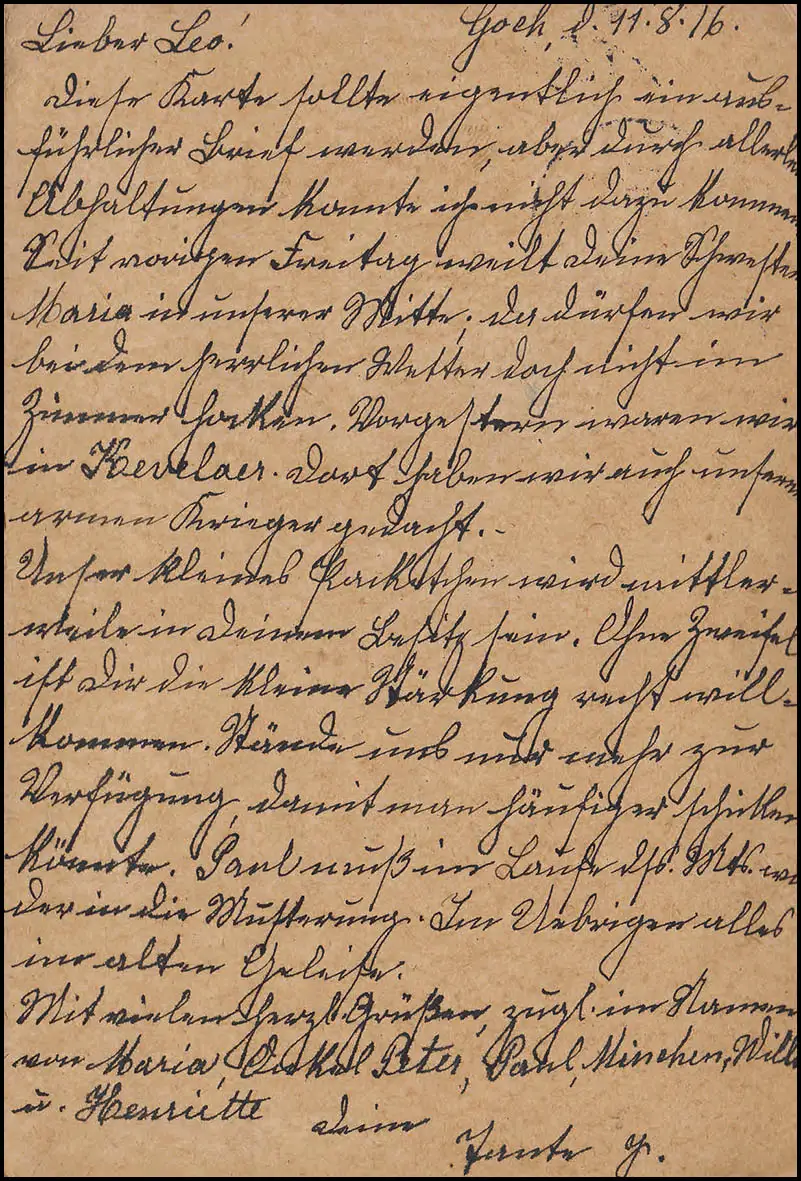 Goch, d. 11.8.16.
Lieber Leo!
Diese Karte sollte eigentlich ein aus-
führlicher Brief werden, aber durch allerlei
Abhaltungen konnte ich nicht dazu kommen
Seit vorigen Freitag weilt Deine Schwester
Maria in unserer Mitte, da dürfen wir
bei dem herrlichen Wetter doch nicht im
Zimmer hocken. Vorgestern waren wir
in Kevelaer. Dort haben wir auch unserer
armen Krieger gedacht.-
Unser kleines Packetchen wird mittler-
weile in Deinem Besitz sein. Ohne Zweifel
ist Dir die kleine Stärkung recht will-
kommen. Stände uns nur mehr zur
Verfügung, damit man häufiger schicken
könnte. Paul muß im Laufe ds. Mts. wie
der in die Musterung. Im Uebrigen alles
im alten Geleise.
Mit vielen herzl. Grüßen, zugl. im Namen
von Maria, Onkel Peter, Paul, Minchen, Willi
u. Henriette
Deine
Tante